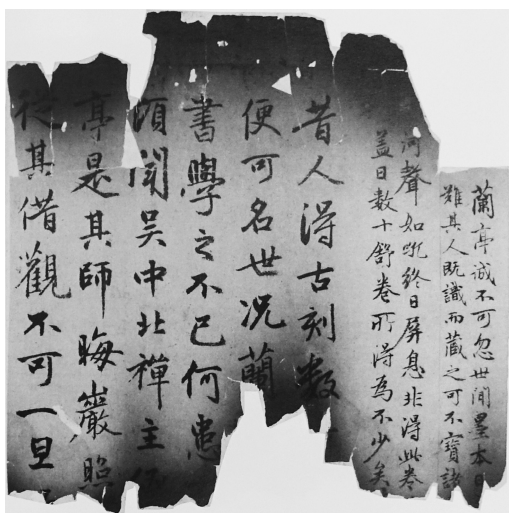 蘭亭誠不可忽世間墨本日
難其人既識而藏之可不寶諸
河聲如吼終日屏息非得此卷
蓋日數十舒卷所得為不少矣
昔人得古刻數
便可名世况蘭
書學之不已何患
頃聞吳中北禪主
亭是其師晦巖照
從其借觀不可一旦